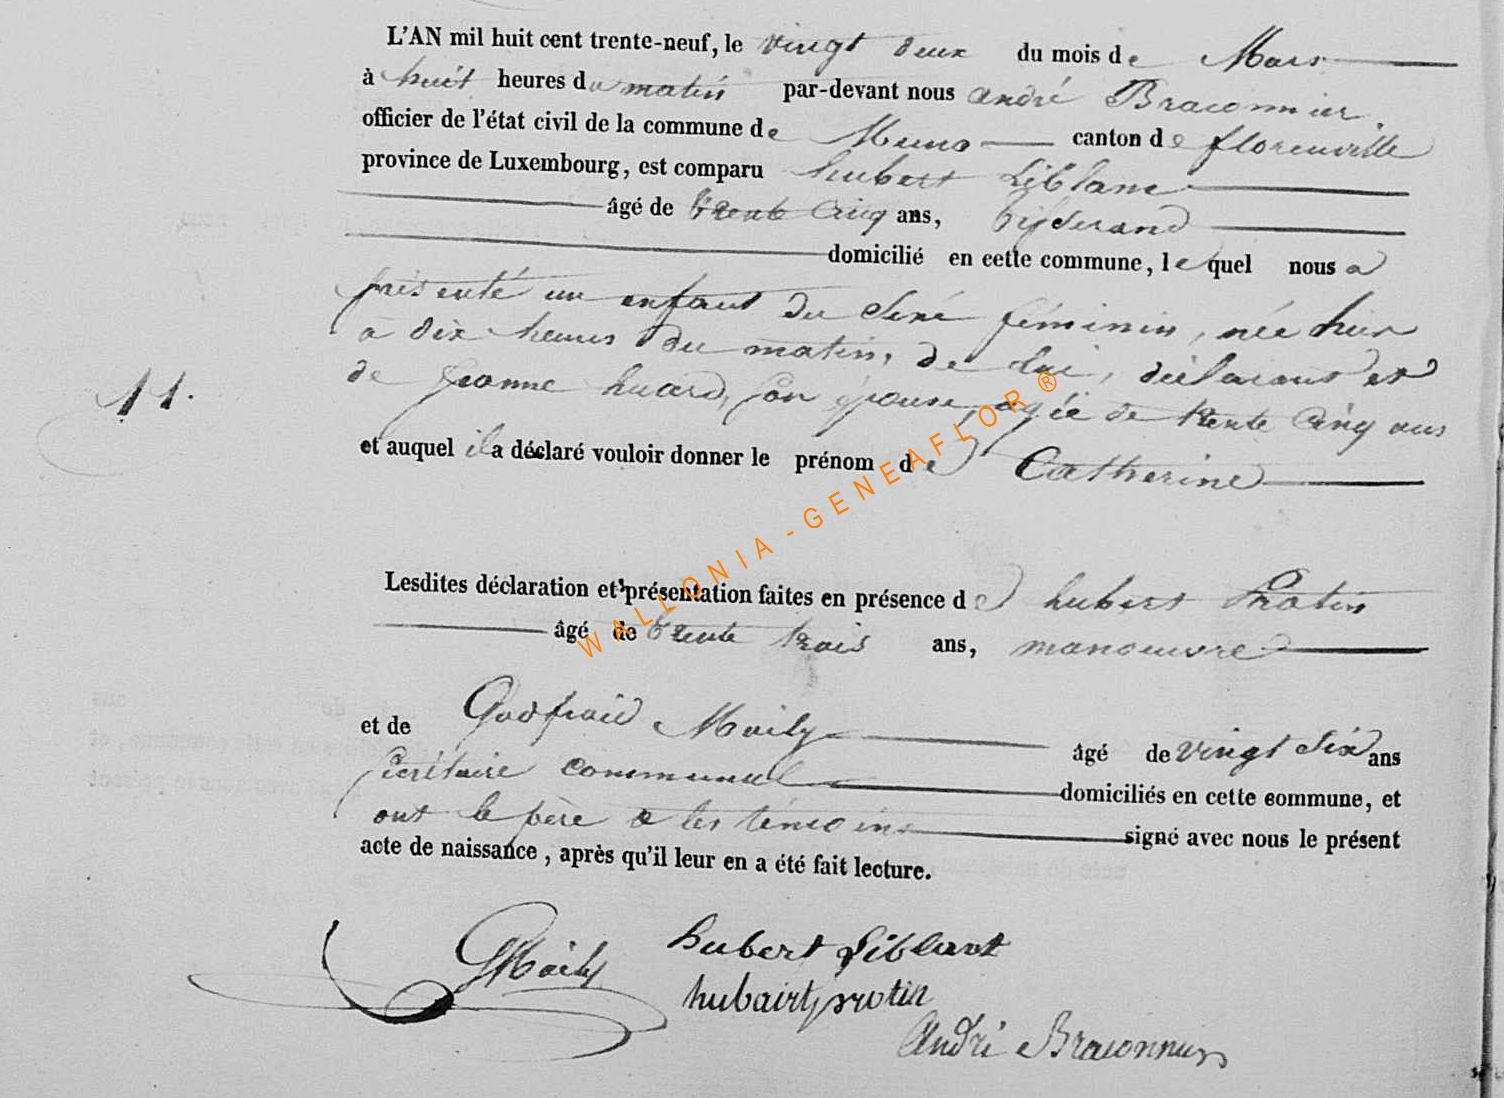 L'AN mil huit cent trente-neuf, le vingt deux du mois de Mars
à huit heures du matin par-devant nous andré Braconnier.
officier de l'état civil de la commune de Muno canton de florenville
province de Luxembourg, est comparu hubert Liblanc
âgé de trente cinq ans, tisserand
domicilié en cette commune, lequel nous a
présenté un enfant du sexe féminin, née hier
à dix heures du matin, de lui, déclarant et
11.
de jeanne huard, son épouse, agée de trente cinq ans
et auquel il a déclaré vouloir donner le prénom de Catherine
WALLONIA - GENEAFLOR ®
Lesdites déclaration et présentation faites en présence de hubert Protin
âgé de trente trois ans, manoeuvre
et de Godfroid Maily âgé de vingt six ans
sécrétaire communal domiciliés en cette commune, et
ont le père & les témoins signé avec nous le présent
acte de naissance, après qu'il leur en a été fait lecture.
GMaily hubert Liblant
hubairt protin
André Braconnier